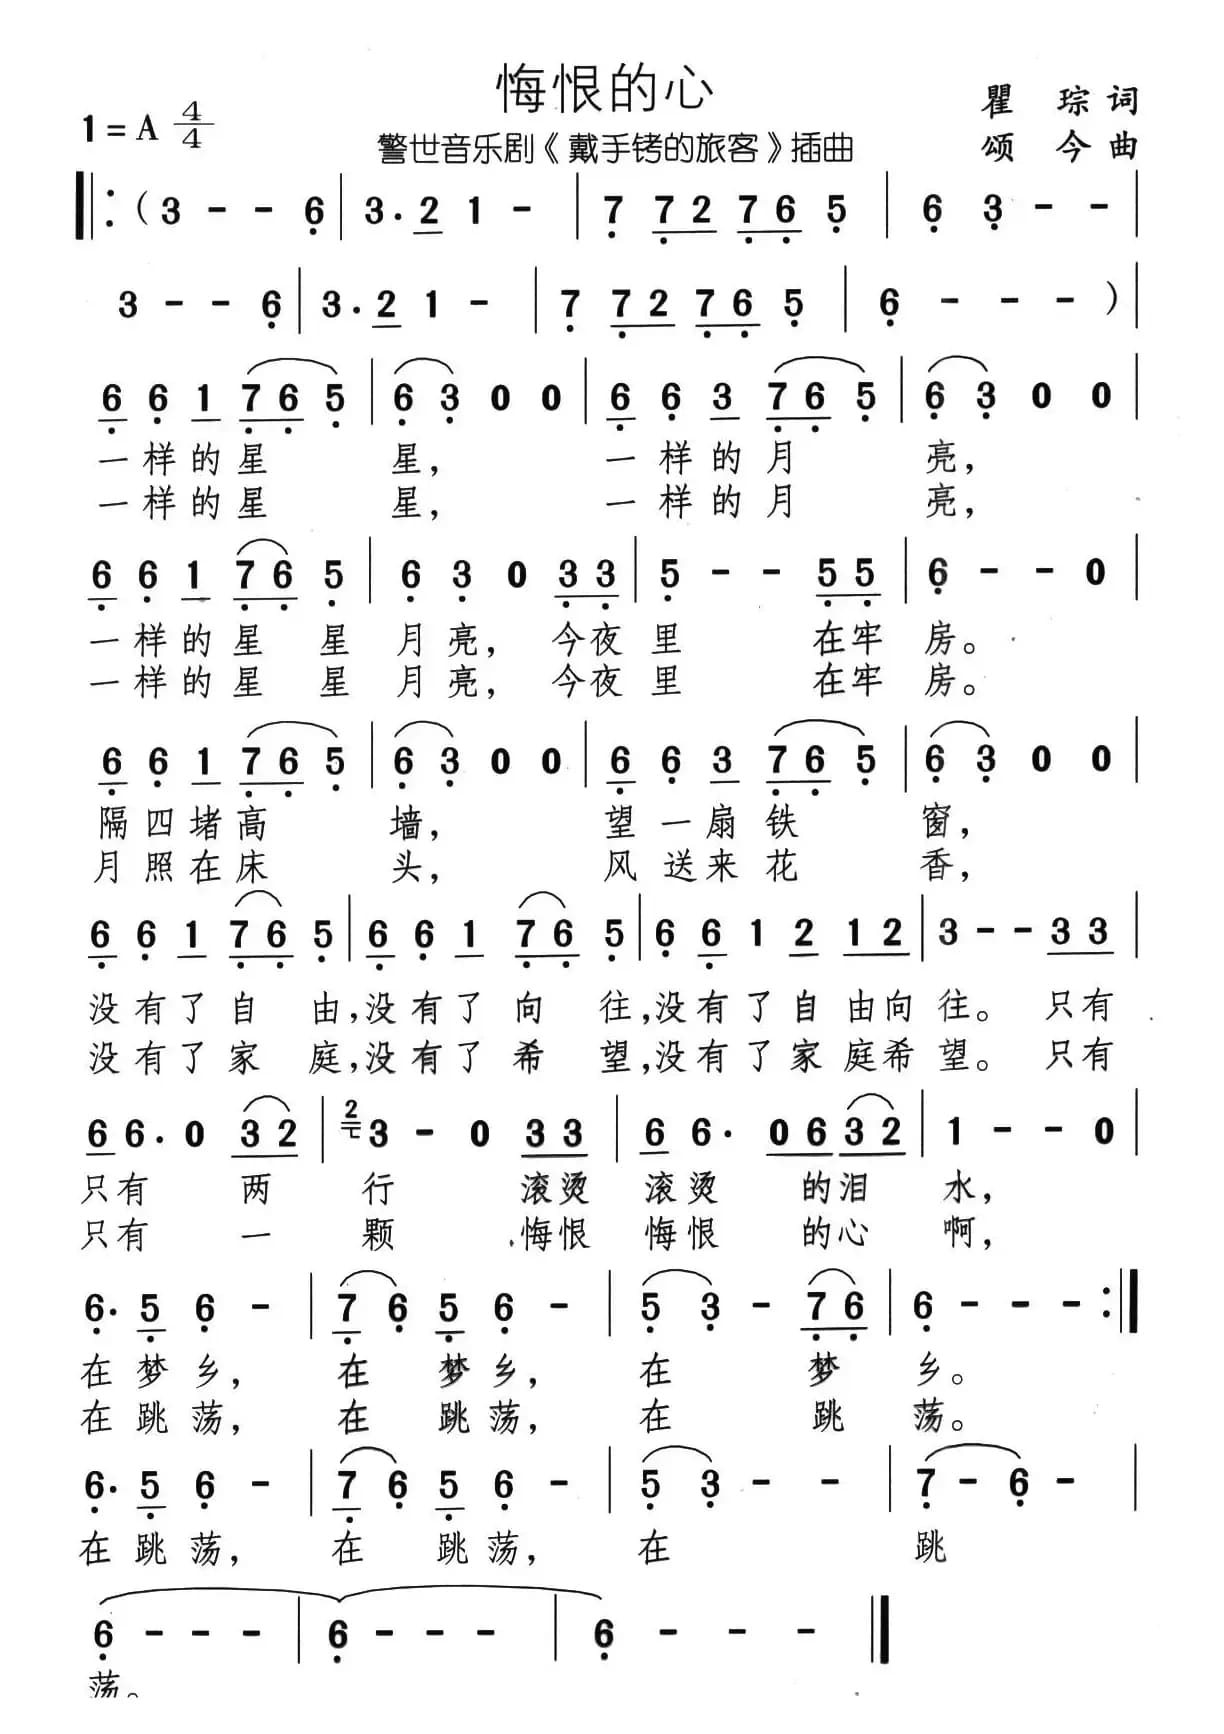 悔恨的心
1=A 4/4
警世音乐剧《戴手铐的旅客》插曲
瞿 琮词
颂 今曲
(3 - - 6 | 3. 2 1 - | 7 7 2 7 6 5 | 6 3 - - |
3 - - 6 | 3. 2 1 - | 7 7 2 7 6 5 | 6 - - - ) |
6 6 1 7 6 5 | 6 3 0 0 | 6 6 3 7 6 5 | 6 3 0 0 |
一样的星 星， 一样的月 亮，
一样的星 星， 一样的月 亮，
6 6 1 7 6 5 | 6 3 0 3 3 | 5 - - 5 5 | 6 - - 0 |
一样的星 星 月亮，今夜里 在牢 房。
一样的星 星 月亮，今夜里 在牢 房。
6 6 1 7 6 5 | 6 3 0 0 | 6 6 3 7 6 5 | 6 3 0 0 |
隔四堵高 墙， 望一扇铁 窗，
月照在床 头， 风送来花 香，
6 6 1 7 6 5 | 6 6 1 7 6 5 | 6 6 1 2 1 2 | 3 - - 3 3 |
没有了自 由，没有了向 往，没有了自由向往。只有
没有了家 庭，没有了希 望，没有了家庭希望。只有
6 6. 0 3 2 | 2 3 - 0 3 3 | 6 6. 0 6 3 2 | 1 - - 0 |
只有 两 行 滚烫 滚烫 的泪 水，
只有 一 颗 悔恨 悔恨 的心 啊，
6. 5 6 - | 7 6 5 6 - | 5 3 - 7 6 | 6 - - - :|
在梦乡， 在 梦乡， 在 梦 乡。
在跳荡， 在 跳荡， 在 跳 荡。
6. 5 6 - | 7 6 5 6 - | 5 3 - - | 7 - 6 - |
在跳荡， 在 跳荡， 在 跳
6 - - - | 6 - - - | 6 - - - ‖
荡。